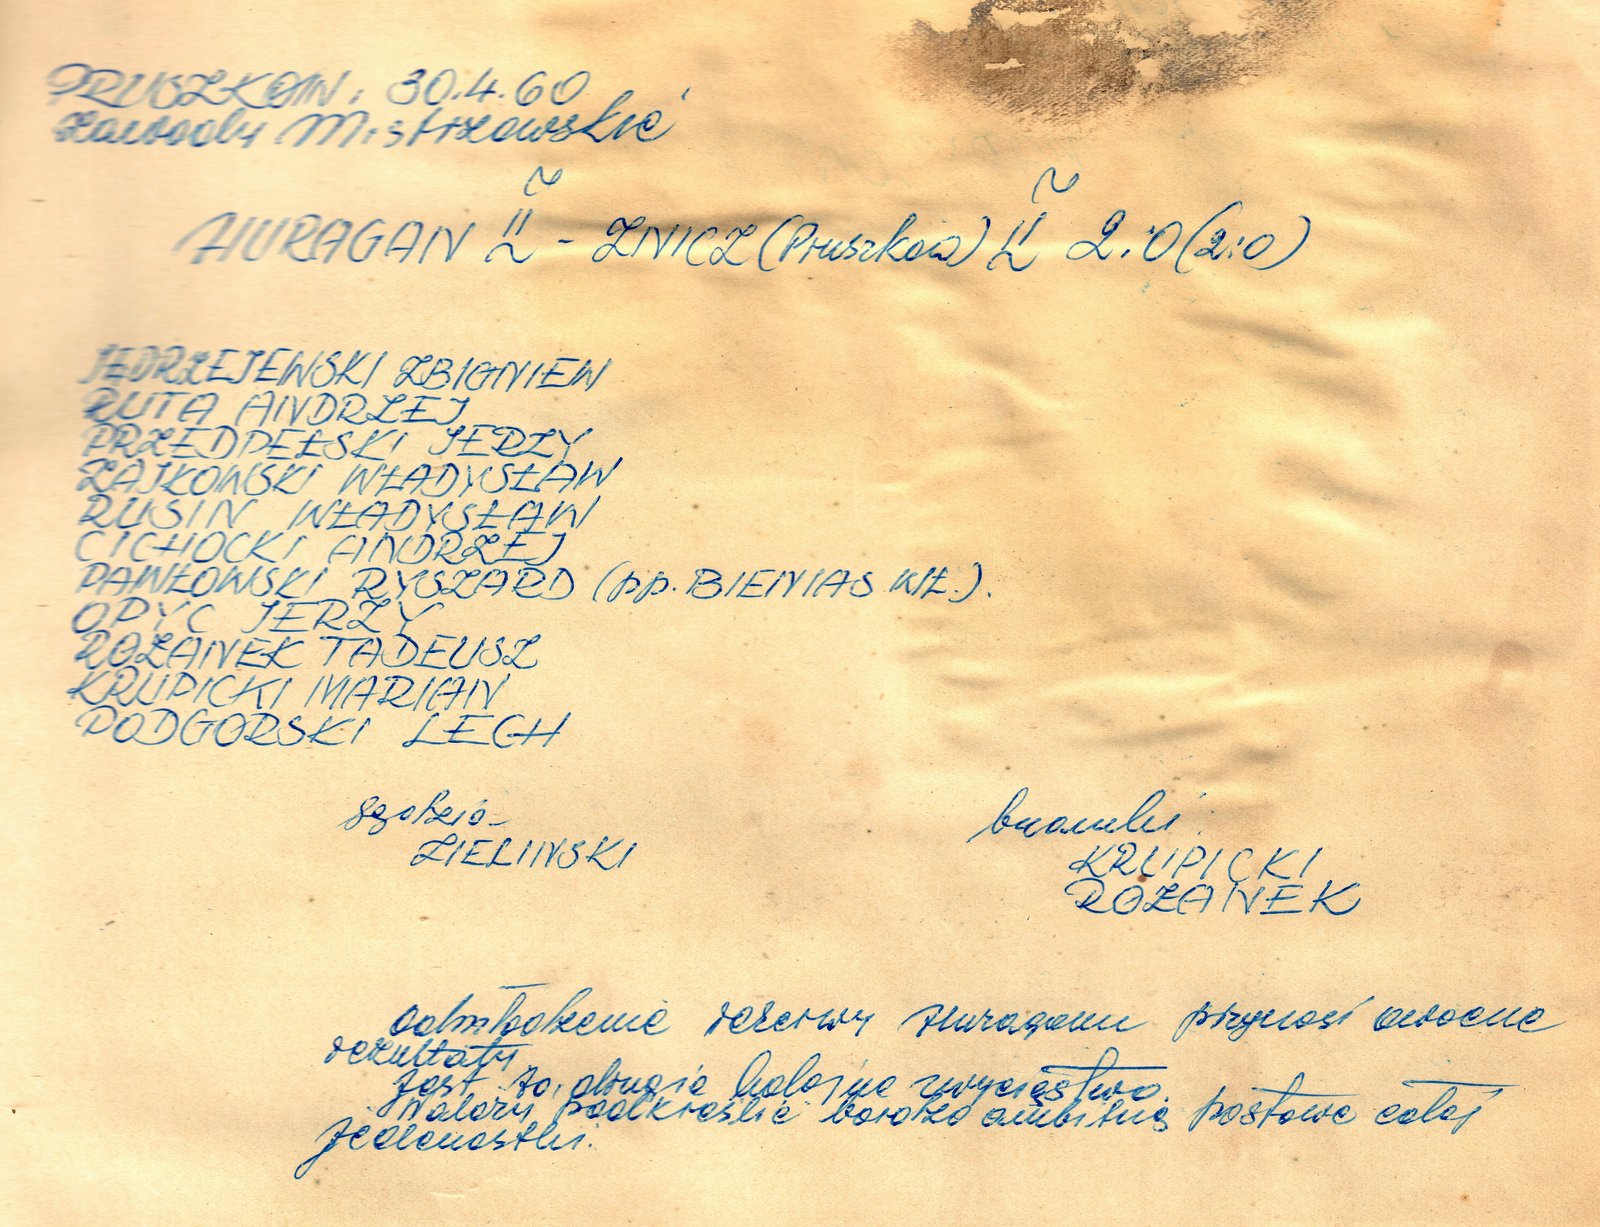 PRUSZKOW. 30.4.60
Zawody Mistrzowskie
HURAGAN II - ZNICZ (Pruszków) II 2:0 (2:0)
JĘDRZEJEWSKI ZBIGNIEW
RUTA ANDRZEJ
PRZEDPEŁSKI JERZY
ZAJKOWSKI WŁADYSŁAW
RUSIN WŁADYSŁAW
CICHOCKI ANDRZEJ
PAWŁOWSKI RYSZARD (pp. BIENIAS WŁ.).
OPYC JERZY
ROŻANEK TADEUSZ
KRUPICKI MARIAN
PODGORSKI LECH
sędzia-
ZIELINSKI
bramki:
KRUPICKI
ROŻANEK
odmłodzenie rezerwy Huraganu przynosi owocne
rezultaty
Jest to drugie kolejne zwycięstwo.
Należy podkreślić bardzo ambitną postawę całej
jedenastki.